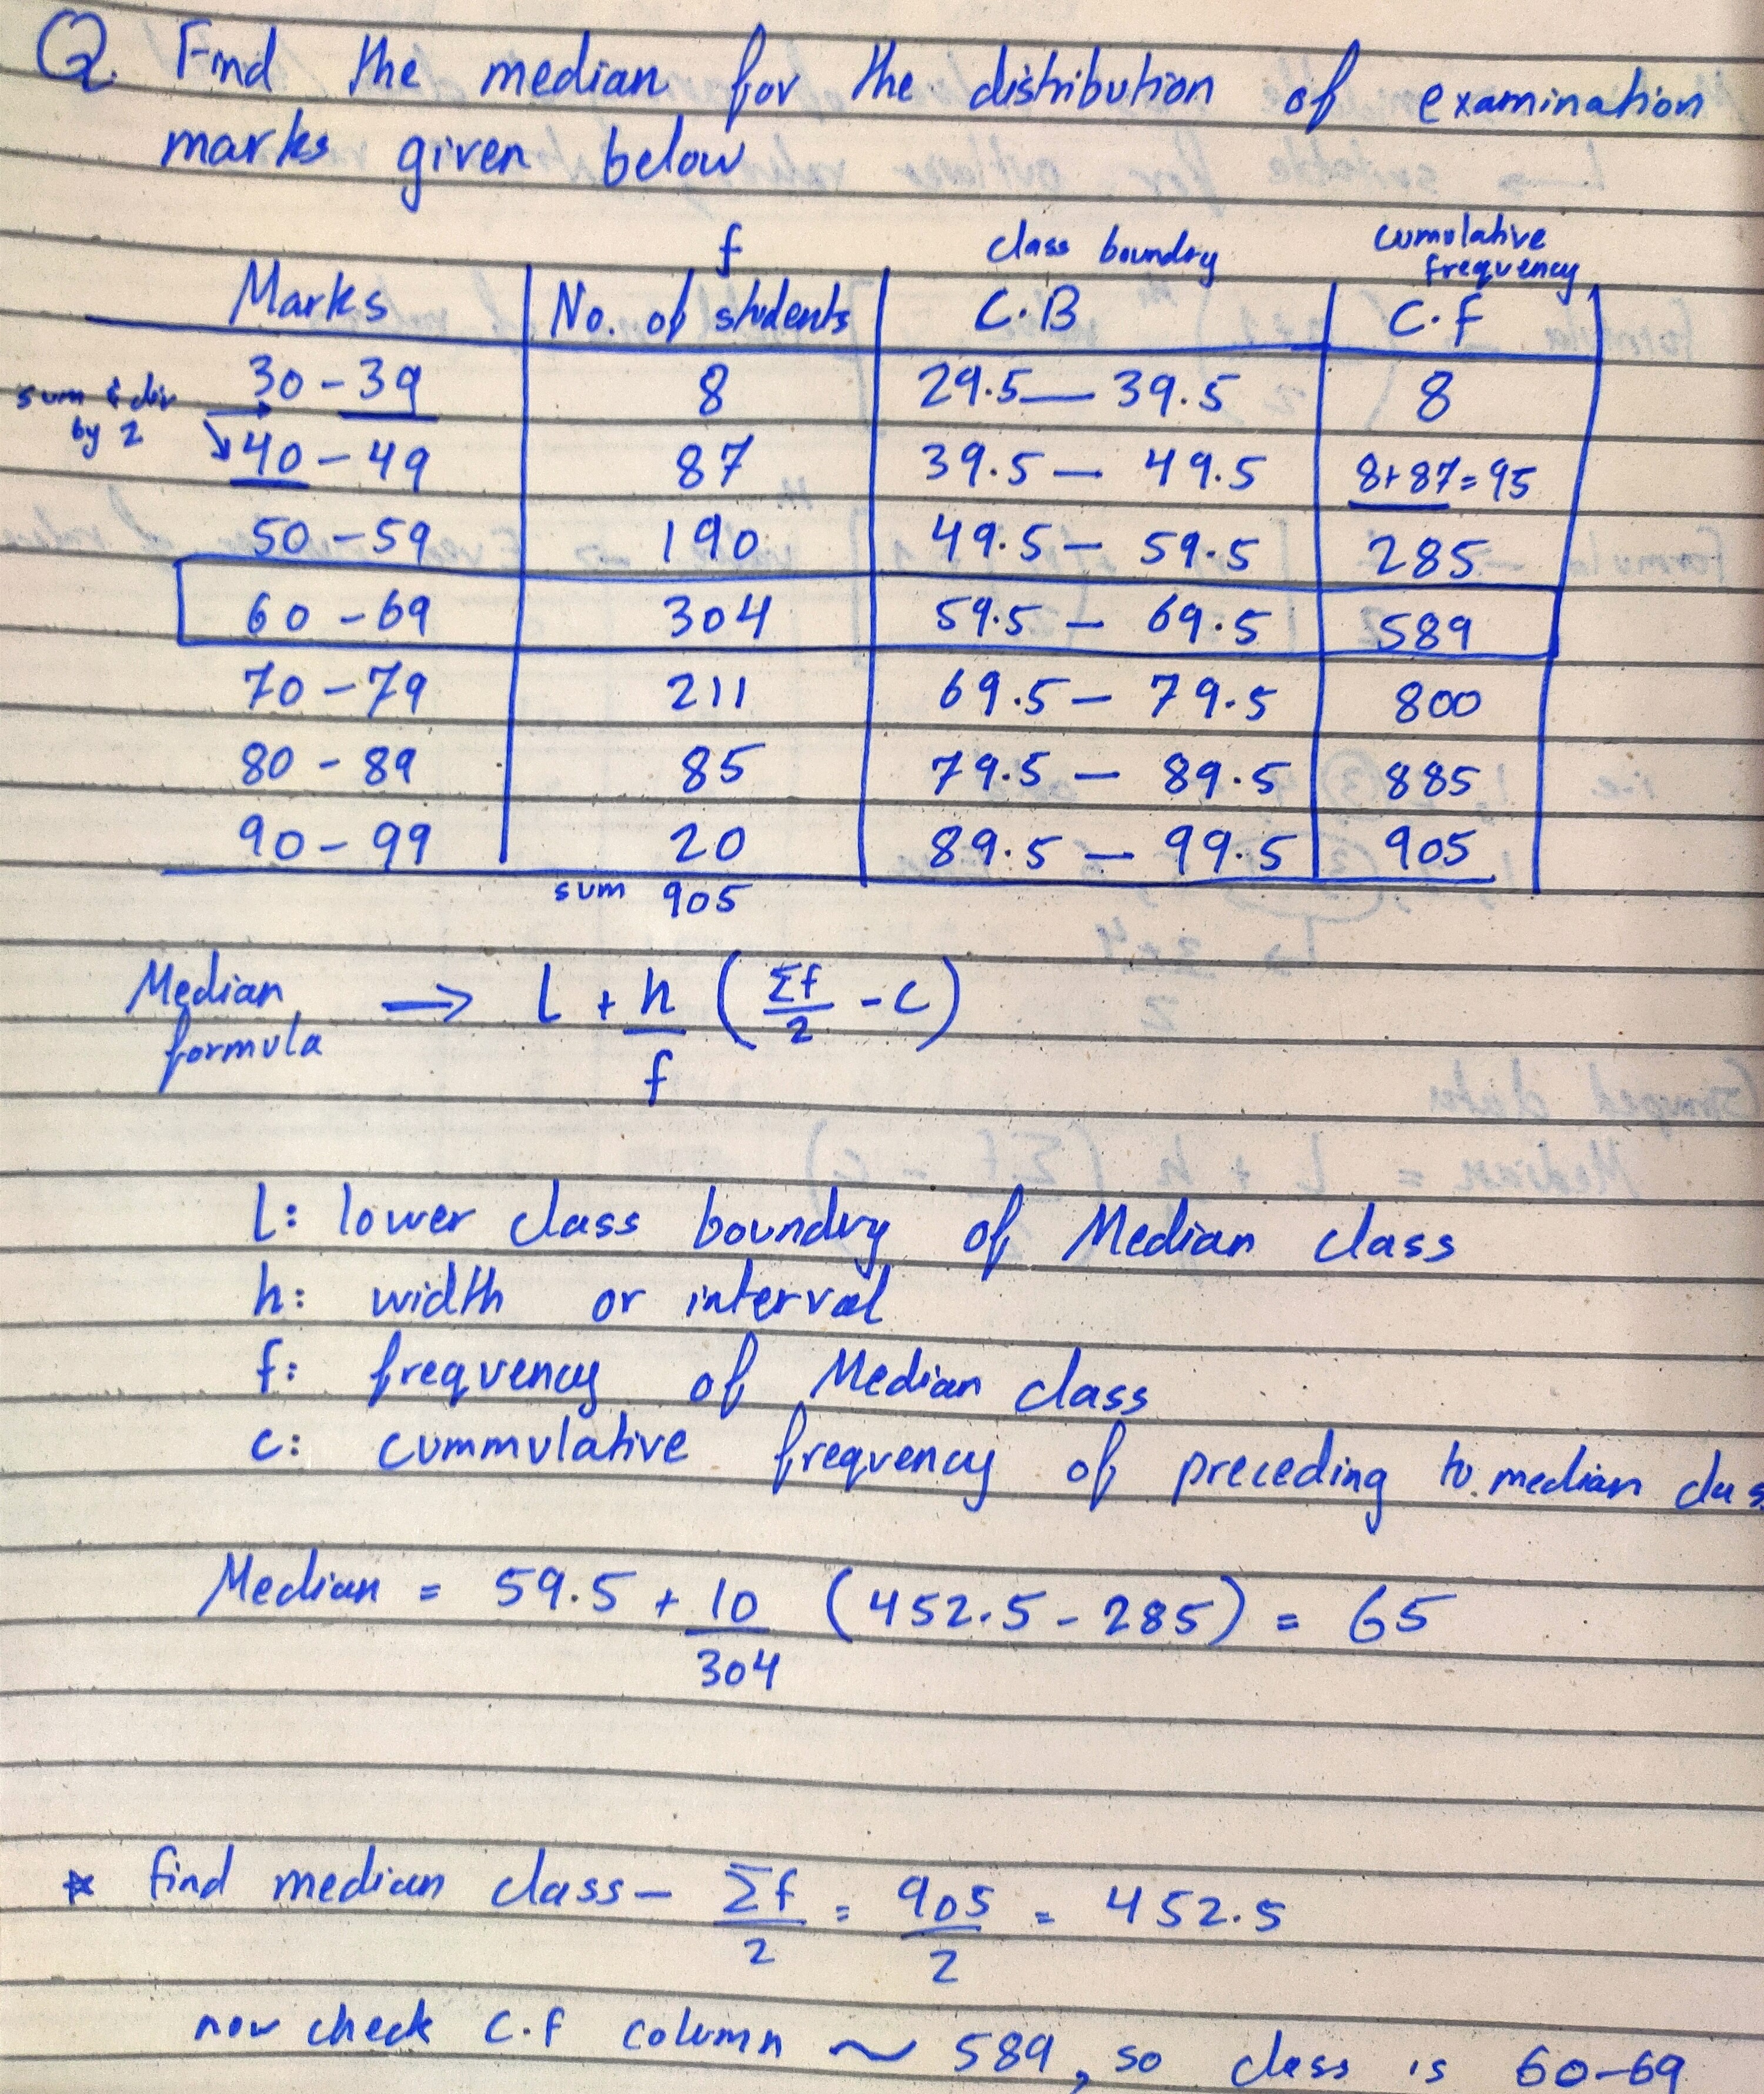 Q. Find the median for the distribution of examination
marks given below
f class boundry cumulative frequency
Marks No. of students C.B C.F
30-39 8 29.5-39.5 8
sum & div by 2
40-49 87 39.5-49.5 8+87=95
50-59 190 49.5-59.5 285
60-69 304 59.5-69.5 589
70-79 211 69.5-79.5 800
80-89 85 79.5-89.5 885
90-99 20 89.5-99.5 905
sum 905
Median formula → l + h/f (Σf/2 - c)
l: lower class boundry of Median class
h: width or interval
f: frequency of Median class
c: cummulative frequency of preceding to median clas
Median = 59.5 + 10/304 (452.5 - 285) = 65
* find median class - Σf/2 = 905/2 = 452.5
now check C.f column ~ 589, so class is 60-69